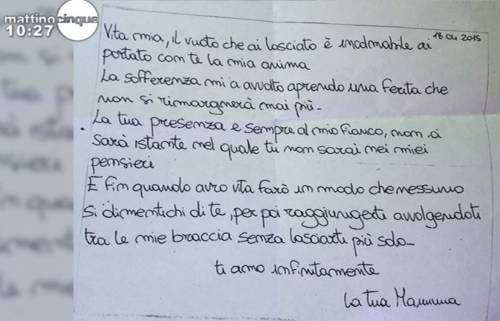 mattino cinque
10:27
18 04 2015
Vita mia, il vuoto che ai lasciato è incolmabile ai
portato con te la mia anima
La sofferenza mi a avvolto aprendo una ferita che
non si rimarginerà mai più.
La tua presenza e sempre al mio fianco, non ci
sarà istante nel quale tu non sarai nei miei
pensieri
E fin quando avro vita farò in modo che nessuno
si dimentichi di te, per poi raggiungerti avvolgendoti
tra le mie braccia senza lasciarti più solo_
ti amo infinitamente
la tua Mamma